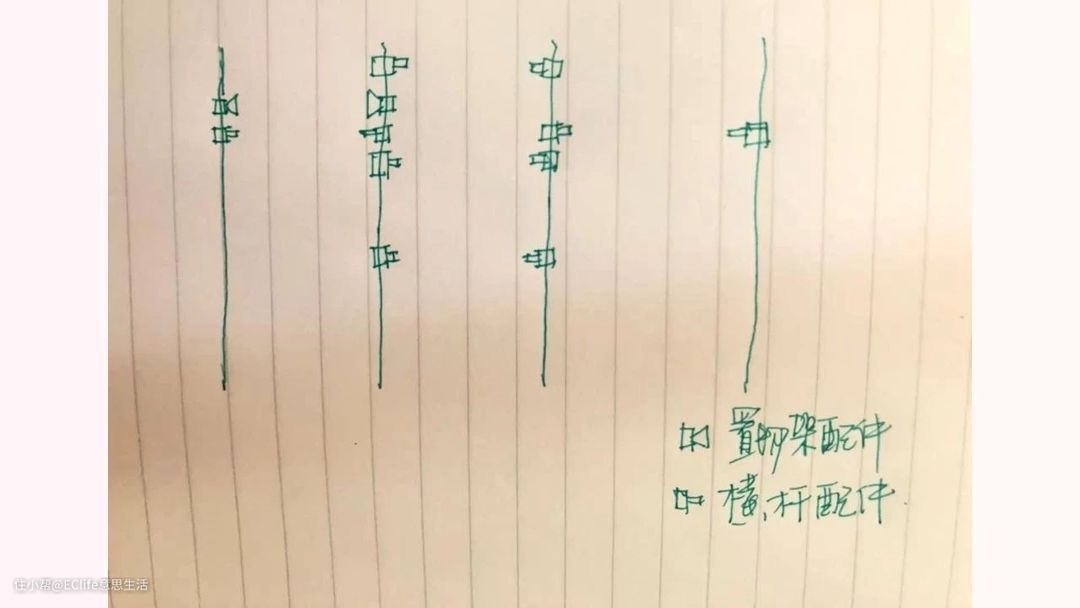 置物架配件
横杆配件
住小帮@EClife意思生活